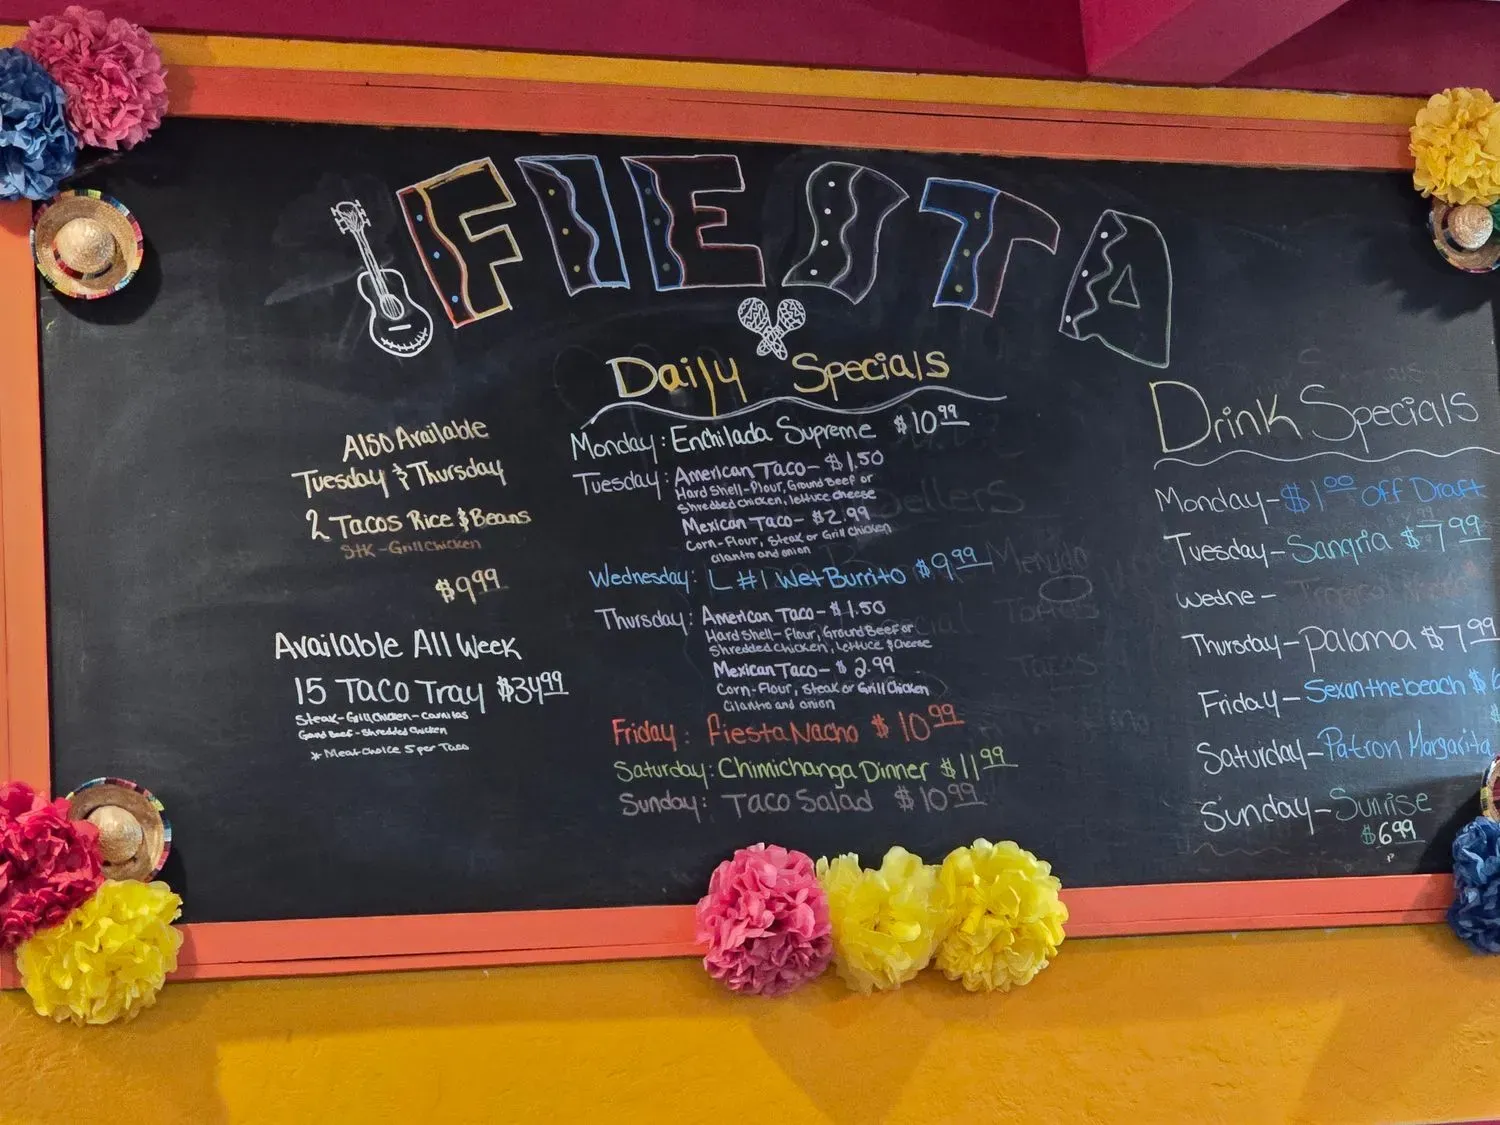 FIESTA
Also Available
Tuesday & Thursday
2 Tacos Rice & Beans
Stk-Grill Chicken
$9.99
Available All Week
15 Taco Tray $34.99
Steak-Grill Chicken-Carnitas
Grnd Beef-Shredded Chicken
* Meat choice 5 per Taco
Daily Specials
Monday: Enchilada Supreme $10.99
Tuesday: American Taco- $1.50
Hard Shell-Flour, Ground Beef or
Shredded Chicken, lettuce cheese
Mexican Taco- $2.99
Corn-Flour, Steak or Grill Chicken
Cilantro and onion
Wednesday: L #1 Wet Burrito $9.99
Thursday: American Taco- $1.50
Hard Shell-Flour, Ground Beef or
Shredded Chicken, Lettuce & Cheese
Mexican Taco- $2.99
Corn-Flour, Steak or Grill Chicken
Cilantro and onion
Friday: Fiesta Nacho $10.99
Saturday: Chimichanga Dinner $11.99
Sunday: Taco Salad $10.99
Drink Specials
Monday-$1.00 off Draft
Tuesday-Sangria $7.99
Wedne-
Thursday-Paloma $7.99
Friday-Sexonthebeach $6
Saturday-Patron Margarita
Sunday-Sunrise
$6.99